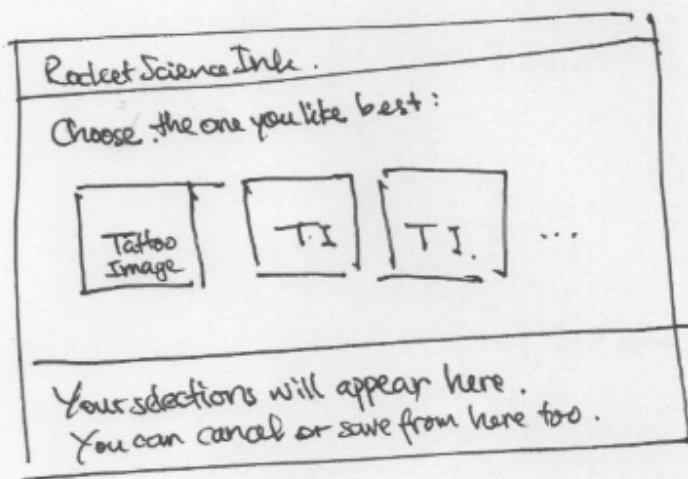 Rocket Science Ink.
Choose the one you like best:
Tattoo
Image
T.I
T I.
...
Your selections will appear here.
You can cancel or save from here too.